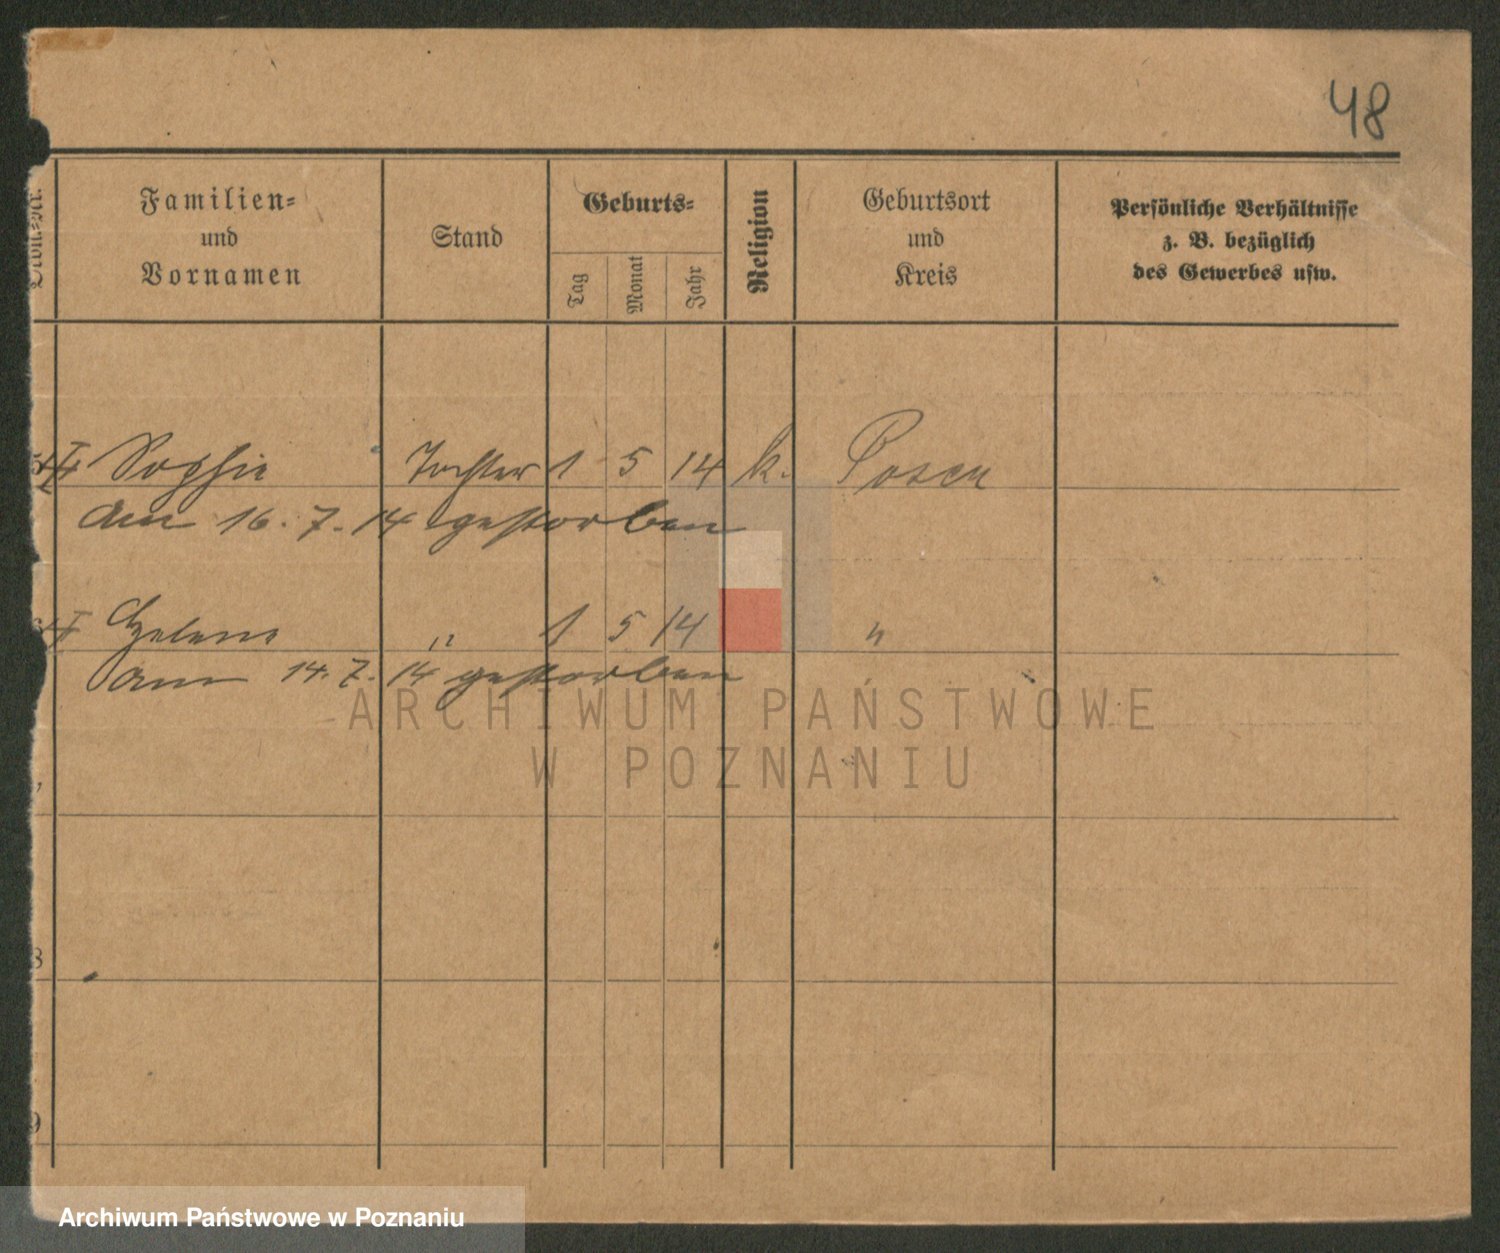 48
Ordn.-Nr.
Familien=
und
Vornamen
Stand
Geburts=
Tag
Monat
Jahr
Religion
Geburtsort
und
Kreis
Persönliche Verhältnisse
z. B. bezüglich
des Gewerbes usw.
Sophie Tochter 1 5 14 k. Posen
am 16. 7. 14 gestorben
Helene " 1 5 14 "
am 14. 7. 14 gestorben
8
9
ARCHIWUM PAŃSTWOWE
W POZNANIU
Archiwum Państwowe w Poznaniu